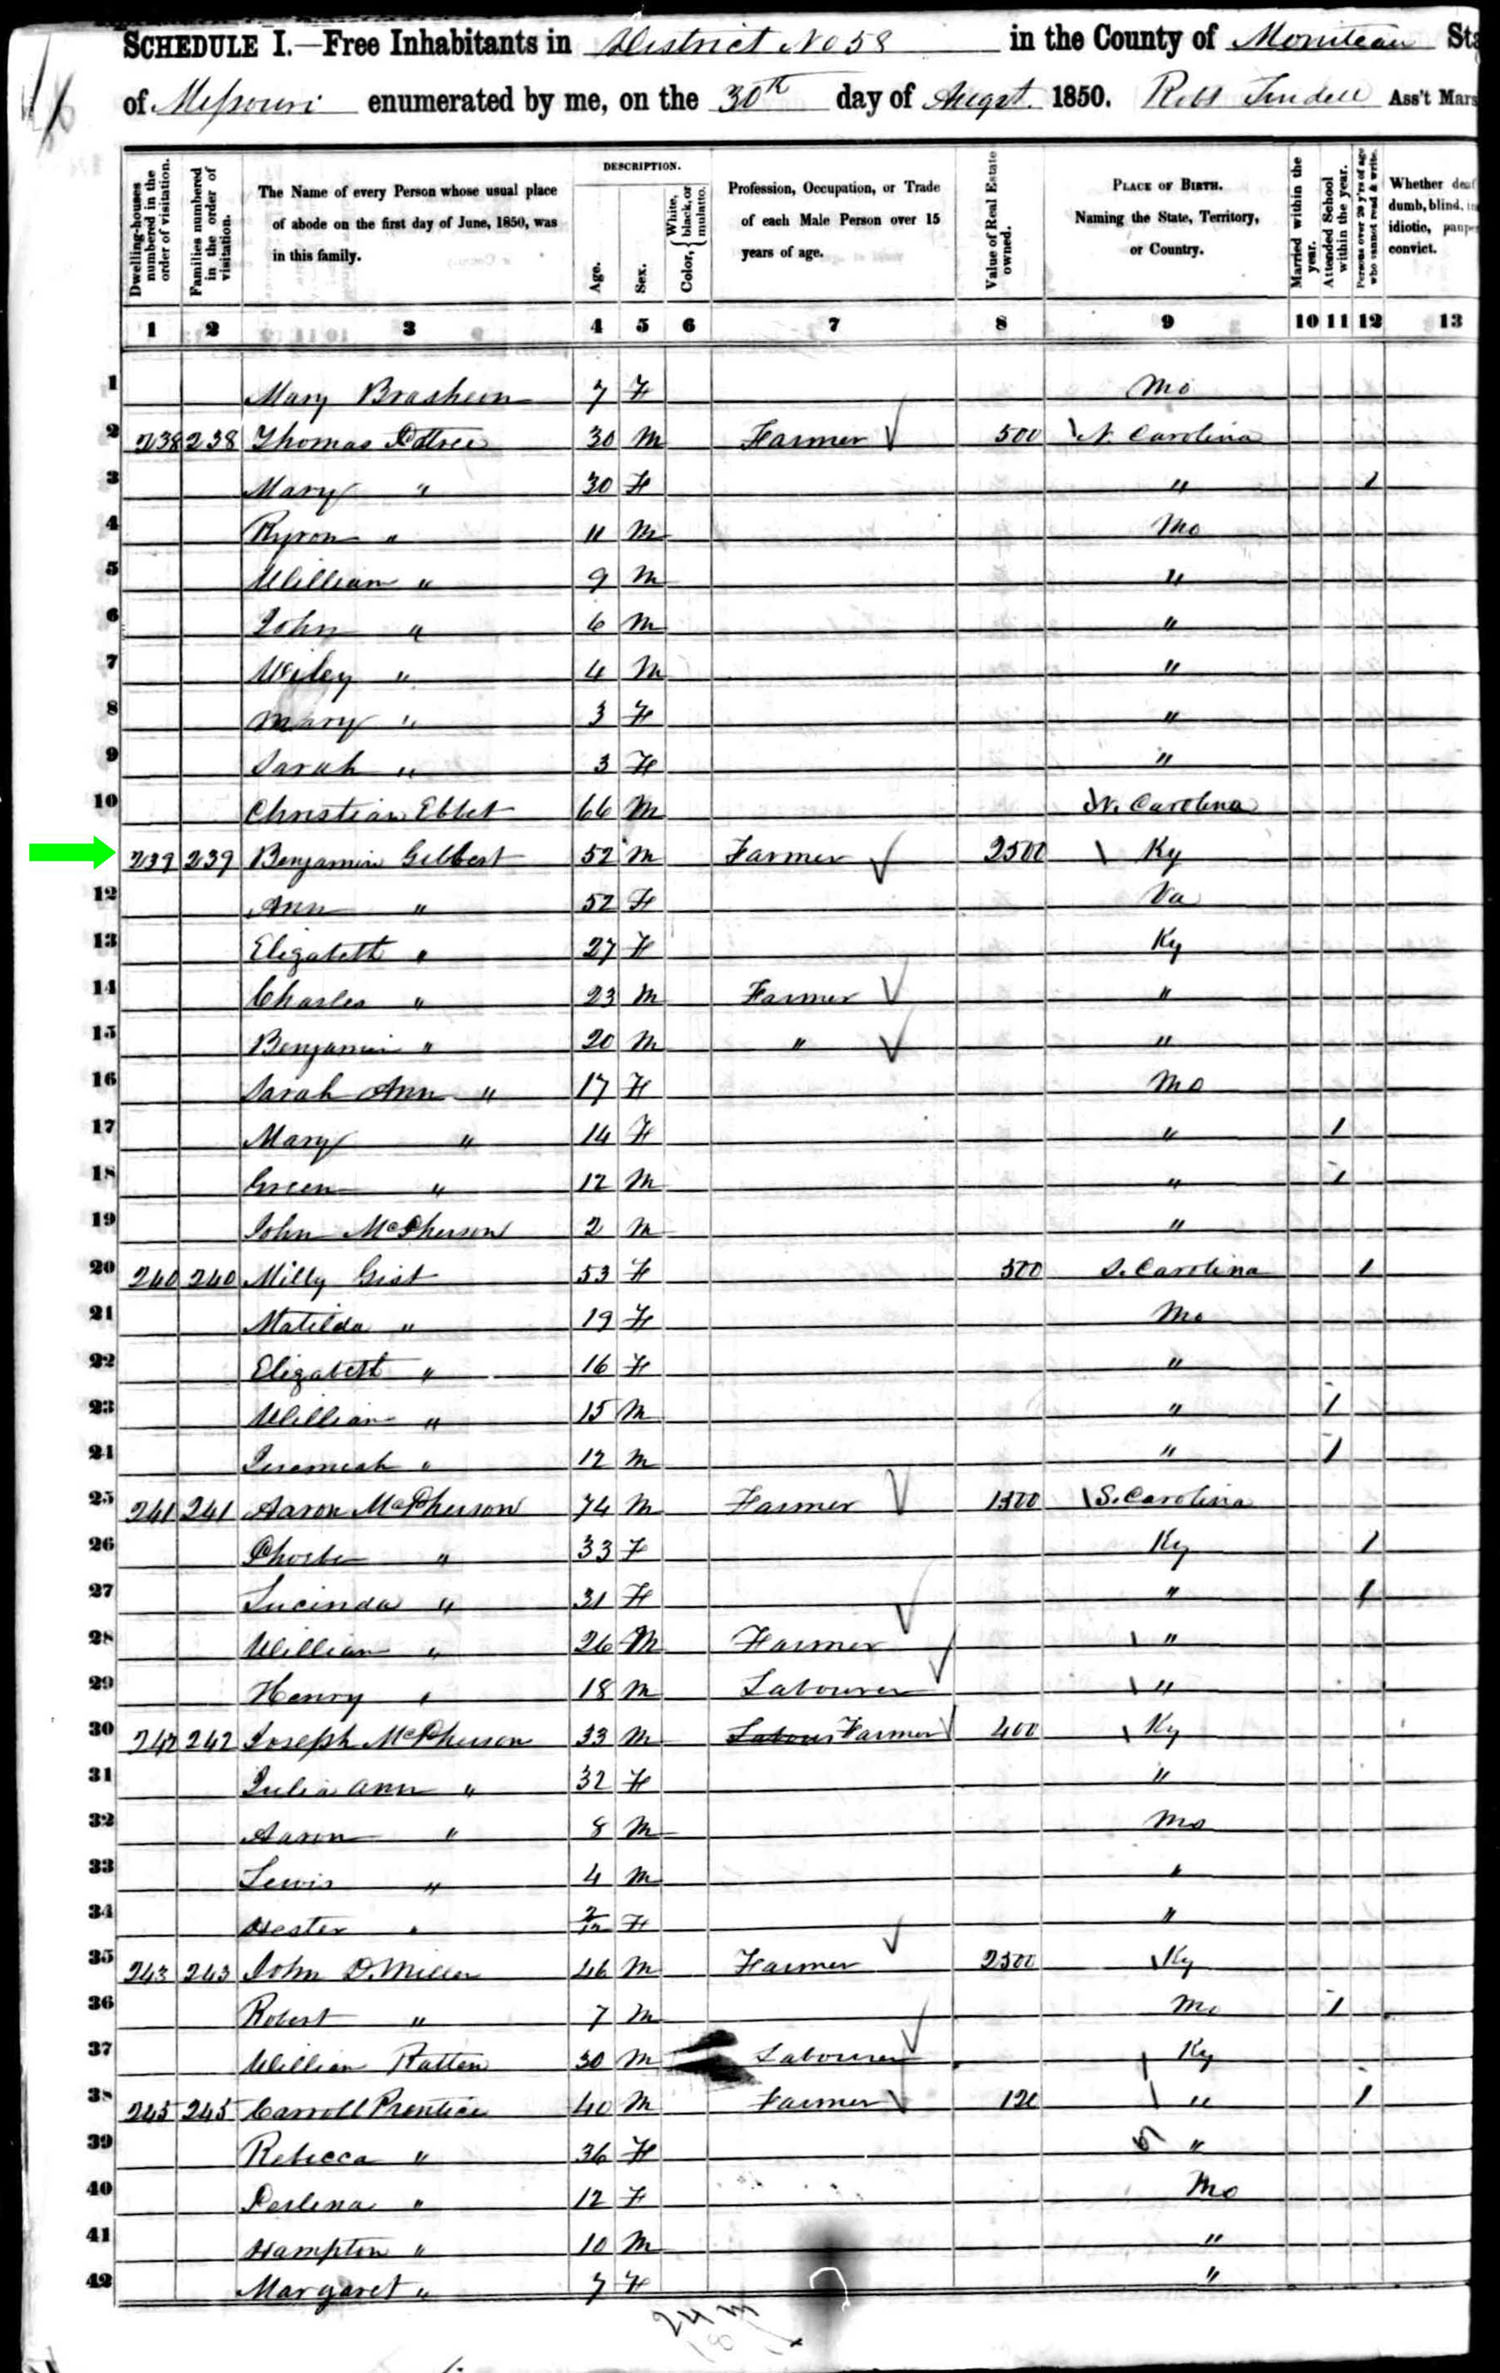 SCHEDULE I.—Free Inhabitants in District No 58 in the County of Moniteau Sta
of Missouri enumerated by me, on the 30th day of Augst. 1850. Robt Tindell Ass't Mars
Dwelling-houses numbered in the order of visitation.
Families numbered in the order of visitation.
The Name of every Person whose usual place of abode on the first day of June, 1850, was in this family.
DESCRIPTION.
Age.
Sex.
Color, { White, black, or mulatto.
Profession, Occupation, or Trade of each Male Person over 15 years of age.
Value of Real Estate owned.
PLACE OF BIRTH. Naming the State, Territory, or Country.
Married within the year.
Attended School within the year.
Persons over 20 y'rs of age who cannot read & write.
Whether deaf dumb, blind, in idiotic, paupe convict.
1 2 3 4 5 6 7 8 9 10 11 12 13
1 Mary Brasheon 7 F Mo
2 238 238 Thomas 30 M Farmer 500 N. Carolina
3 Mary " 30 F " 1
4 Byron " 11 M Mo
5 William " 9 M "
6 John " 6 M "
7 Wiley " 4 M "
8 Mary " 3 F "
9 Sarah " 3 F "
10 Christian Ebbet 66 M N. Carolina
239 239 Benjamin Gilbert 52 M Farmer 2500 Ky
12 Ann " 52 F Va
13 Elizabeth " 27 F Ky
14 Charles " 23 M Farmer "
15 Benjamin " 20 M " "
16 Sarah Ann " 17 F Mo
17 Mary " 14 F " 1
18 Green " 12 M " 1
19 John McPherson 2 M "
20 240 240 Milly Gist 53 F 500 S. Carolina 1
21 Matilda " 19 F Mo
22 Elizabeth " 16 F "
23 William " 15 M " 1
24 Jeremiah " 12 M " 1
25 241 241 Aaron McPherson 74 M Farmer 1500 S. Carolina
26 Phoebe " 33 F Ky 1
27 Lucinda " 31 F " 1
28 William " 26 M Farmer "
29 Henry " 18 M Labourer "
30 242 242 Joseph McPherson 33 M Labour Farmer 400 Ky
31 Julia Ann " 32 F "
32 Aaron " 8 M Mo
33 Lewis " 4 M "
34 Hester " 2/12 F "
35 243 243 John D. Miller 46 M Farmer 2500 Ky
36 Robert " 7 M Mo 1
37 William Ratten 30 M Labourer Ky
38 245 245 Carroll Prentice 40 M Farmer 120 " 1
39 Rebecca " 36 F "
40 Perlena " 12 F Mo
41 Hampton " 10 M "
42 Margaret " 7 F "
24 m